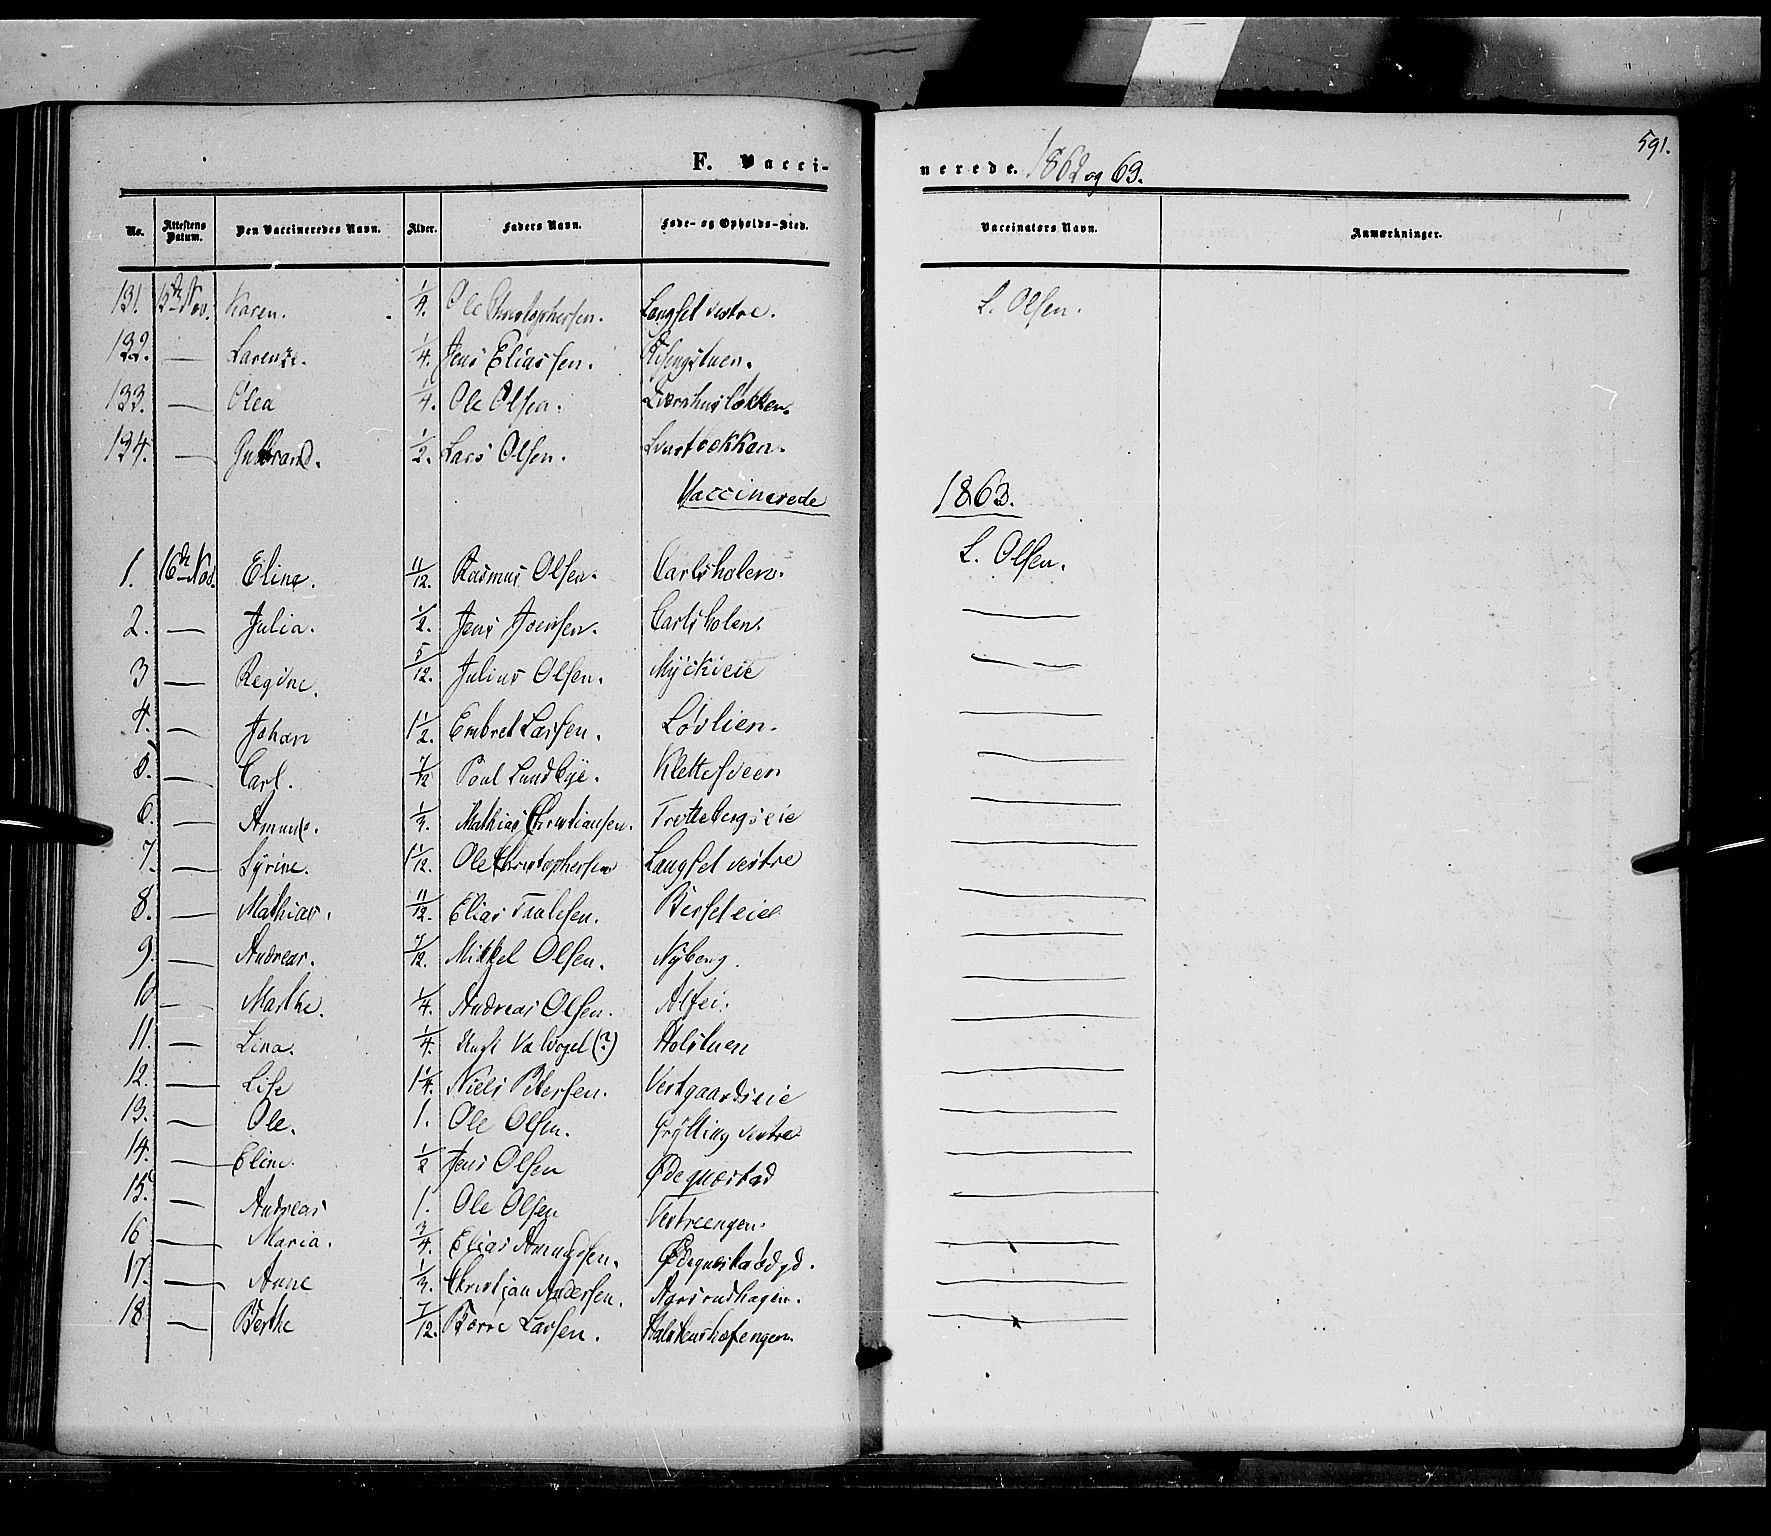 591.
F. Vaccinerede. 1862 og 63.
No. Attestens Datum. Den Vaccineredes Navn. Alder. Faders Navn. Føde- og Opholds-Sted. Vaccinators Navn. Anmærkninger.
131. 15de Nov. Karen. 1/4. Ole Christophersen. Langset vestre. L. Olsen.
132. — Larense. 1/4. Jens Eliassen.
133. — Olea 1/4. Ole Olsen. Kvernhusløkken.
134. — Gulbrand. 1/2. Lars Olsen.
Vaccinerede 1863.
1. 16de Nov. Eline. 11/12. Rasmus Olsen. Carlsholen. L. Olsen.
2. — Julia. 1/2. Jens Jensen. Carlsholen. —
3 — Regine. 5/12. Julius Olsen. Myckieie —
4. — Johan 1 1/2. Embret Larsen. Løvlien. —
5. — Carl. 7/12 Poul Lundbye. Klettesveen —
6. — Amund. 1/3. Mathias Christiansen. Trottebergseie —
7. — Syrine. 1 1/12. Ole Christophersen Langset vestre —
8. — Mathias. 11/12. Elias Paulsen. Berseteie —
9. — Andreas. 7/12. Mikkel Olsen. Nyberg. —
10 — Marthe. 1/4. Andreas Olsen. —
11. — Lina. 1/4. Valvogel (?) Holstuen —
12. — Lise 1 1/4. Niels Petersen. Vestgaardseie —
13. — Ole. 1. Ole Olsen. Grytting vestre —
14. — Eline. 1/2 Jens Olsen Ødequestad —
15. — Andreas 1. Ole Olsen Vestreengen. —
16 — Maria. 3/4. Elias Amundsen. Ødequestadgd. —
17. — Anne 1/3. Christian Andersen. Aarsrudhagen. —
18 — Berthe 7/12. Børre Larsen. —